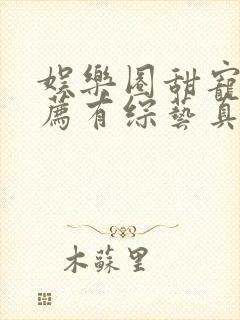 娛樂圈甜寵
薦有綜藝真
木蘇里